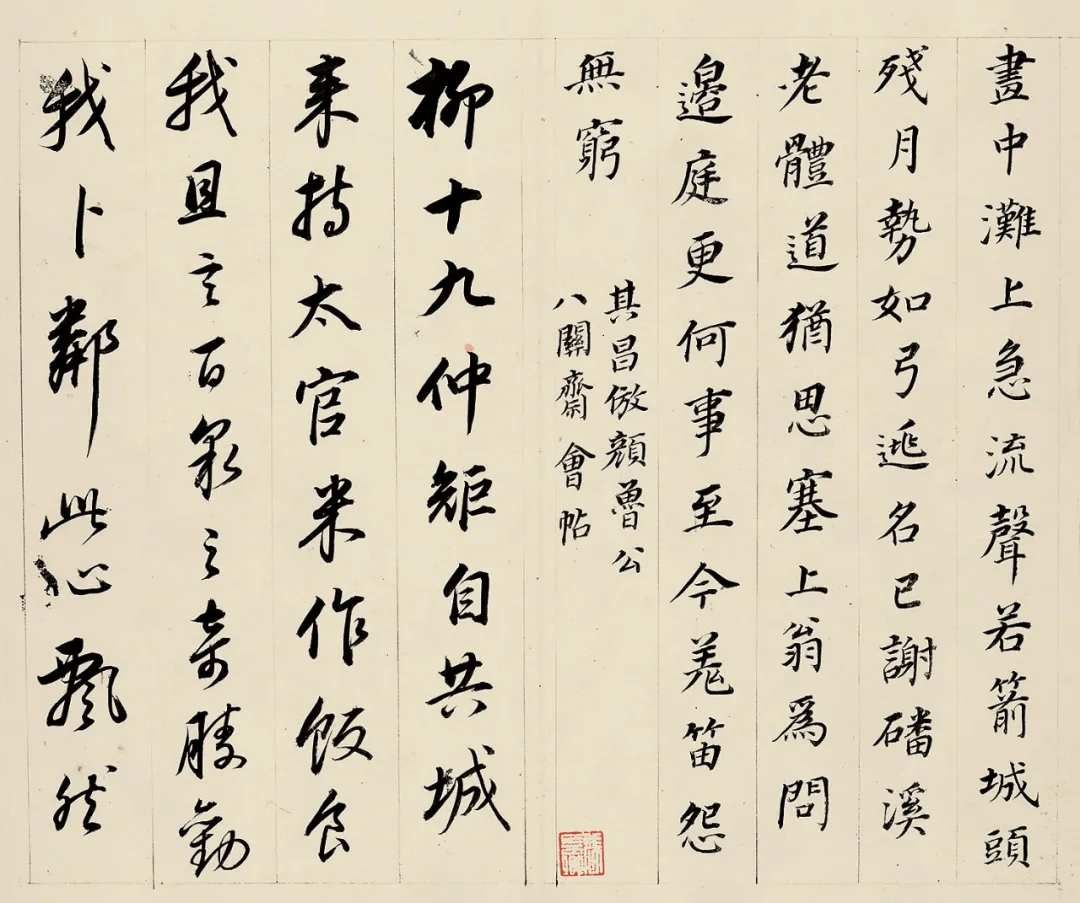 畫中灘上急流聲若箭城頭
殘月勢如弓逃名已謝磻溪
老體道猶思塞上翁為問
邊庭更何事至今羗笛怨
無窮
其昌倣顏魯公
八關齋會帖
柳十九仲矩自共城
来持太官米作飯食
我且言百泉之奇勝勸
我卜鄰此心飄然